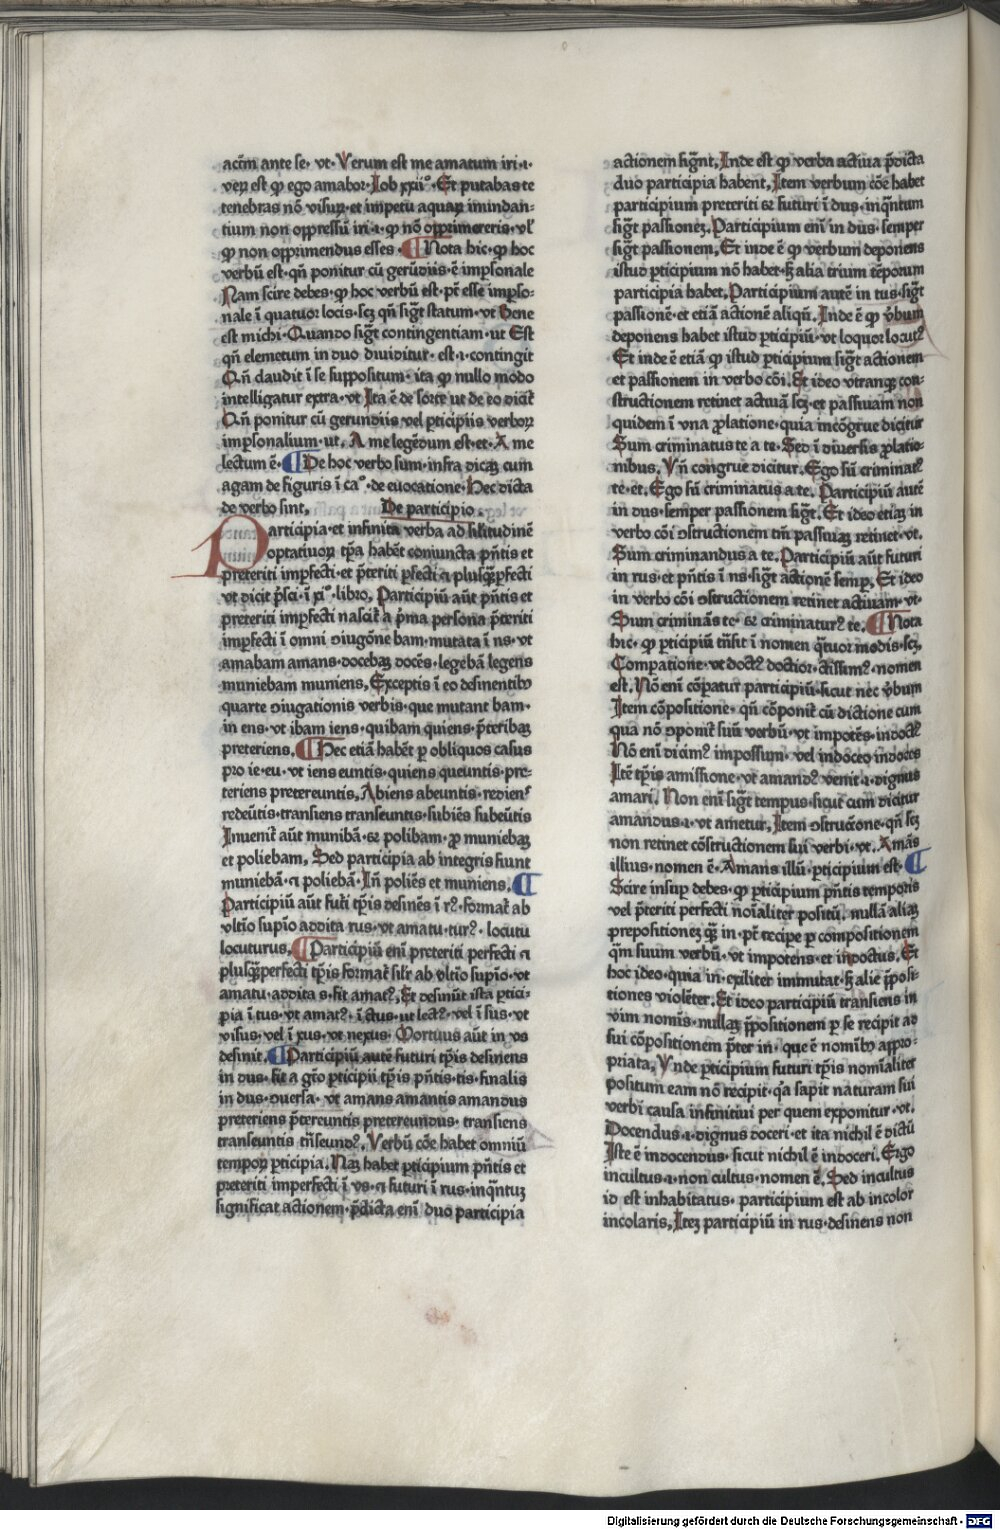 actm̄ ante se· vt· Verum est me amatum iri·ı·
veꝝ est ꝙ ego amabor· Iob xxii°· Et putabas te
tenebras nō visuꝝ· et impetu aquaꝝ inundan-
tium non oppressū iri·ı· ꝙ nō opprimereris· vl'
ꝙ non opprimendus esses· ¶ Nota hic· ꝙ hoc
verbū est· qn̄ ponitur cū gerūdiis· ē imp̱sonale
Nam scire debes· ꝙ hoc verbū est· pt̄ esse imp̱so-
nale ī quatuor locis· scꝫ qn̄ sigt̄ statum· vt Bene
est michi· Quando sigt̄ contingentiam· ut Est
qn̄ elemetum in duo diuiditur· est·ı· contingit
Qn̄ claudit ī se suppositum· ita ꝙ nullo modo
intelligatur extra· vt Ita ē de sorte ut de eo dicit̄
Qn̄ ponitur cū gerundiis vel ꝑticipiis verboꝝ
imp̱sonalium· ut· A me legēdum est· et· A me
lectum ē· ¶ De hoc verbo sum· infra dicaꝫ cum
agam de figuris ī ca°· de euocatione· Hec dicta
de verbo sint, De participio·
Participia· et infinita verba ad silitudinē
optatiuoꝝ tp̄a habēt coniuncta p̄ntis et
preteriti imꝑfecti· et p̄teriti ꝑfecti ⁊ plusqꝫꝑfecti
vt dicit p̄sci· ī xi°· libro, Participiū aūt p̄ntis et
preteriti imꝑfecti nascit̄ a p̄ma persona p̄teriti
imꝑfecti ī omni ꝯiugōne bam· mutata ī ns· vt
amabam amans· docebaꝫ docēs· legebā legens
muniebam muniens, Exceptis ī eo desinentibꝰ
quarte ꝯiugationis verbis· que mutant bam·
in ens· vt ibam iens· quibam quiens· p̄teribaꝫ
preteriens, ¶ Hec etiā habēt ꝑ obliquos casus
pro ie· eu· vt iens euntis· quiens queuntis· pre-
teriens pretereuntis, Abiens abeuntis· rediens
redeūtis· transiens transeuntis· subiēs subeūtis
Inuenit̄ aūt munibā· ⁊ polibam· ꝓ muniebaꝫ
et poliebam, Sed participia ab integris fiunt
muniebā· ⁊ poliebā· Iñ poliēs et muniens, ¶
Participiū aūt futi tp̄is desinēs ī rꝰ· format̄ ab
vltīo supīo addita rus· vt amatu· turꝰ· locutu
locuturus, ¶ Participiū enī preteriti perfecti ⁊
plusqꝫꝑfecti tp̄is format̄ silr̄ ab vltīo supīo· vt
amatu· addita s· fit amatꝰ, Et desinūt ista ꝑtici-
pia ī tus· vt amatꝰ· ī ctus· ut lectꝰ· vel ī sus· vt
visus· vel ī xus· vt nexus· Mortuus aūt in vs
desinit, ¶ Participiū autē futuri tp̄is desinens
in dus· fit a gtō ꝑticipii tp̄is p̄ntis· tis· finalis
in dus· ꝯuersa· vt amans amantis amandus
preteriens p̄tereuntis pretereundus· transiens
transeuntis tn̄seundꝰ, Verbū cōe habet omniū
tempoꝝ ꝑticipia, Naꝫ habet ꝑticipium p̄ntis et
preteriti imperfecti ī vs· ⁊ futuri ī rus· inqn̄tuꝫ
significat actionem· p̄dicta enī duo participia
actionem sigt̄, Inde est ꝙ verba actiua p̄dicta
duo participia habent, Item verbum cōe habet
participium preteriti ⁊ futuri ī dus· inqn̄tum
sigt̄ passioneꝫ, Participium enī in dus· semper
sigt̄ passionem, Et inde ē ꝙ verbum deponens
istud ꝑticipium nō habet· sꝫ alia trium tēporum
participia habet, Participium autē in tus· sigt̄
passionē· et etiā actionē aliqn̄, Inde ē ꝙ v̄bum
deponens habet istud ꝑticipiū· vt loquor locutꝰ
Et inde ē etiā ꝙ istud ꝑticipium sigt̄ actionem
et passionem in verbo cōi, Et ideo vtranqꝫ con-
structionem retinet actiuā scꝫ· et passiuam non
quidem ī vna ꝓlatione· quia incōgrue dicitur
Sum criminatus te a te· Sed ī diuersis ꝓlatio-
nibus, Vn̄ congrue dicitur, Ego sū criminatꝰ
te· et, Ego sū criminatus a te, Participiū autē
in dus· semper passionem sigt̄, Et ideo etiaꝫ in
verbo cōi ꝯstructionem tm̄ passiuaꝫ retinet· vt·
Sum criminandus a te, Participiū aūt futuri
in rus· et p̄ntis ī ns· sigt̄ actionē semꝑ, Et ideo
in verbo cōi ꝯstructionem retinet actiuam· vt·
Sum criminās te· ⁊ criminaturꝰ te, ¶ Nota
hic· ꝙ ꝑticipiū tn̄sit ī nomen qtuor modis· scꝫ,
Compatione· vt doctꝰ doctior· ctissimꝰ· nomen
est, Nō enī cōꝑatur participiū· sicut nec v̄bum
Item cōpositione· qn̄ cōponit̄ cū dictione cum
qua nō ꝯponit̄ suū verbū· vt impotēs· indoctꝰ
Nō enī dicimꝰ impossum· vel indoceo indoces
Itē tp̄is amissione· vt amandꝰ venit·ı· dignus
amari, Non enī sigt̄ tempus· sicut cum dicitur
amandus·ı· vt ametur, Item ꝯstructōne· qn̄ scꝫ
non retinet cōstructionem sui verbi· vt, Amās
illius· nomen ē· Amans illū· ꝑticipium est· ¶
Scire insuꝑ debes· ꝙ ꝑticipium p̄ntis temporis
vel p̄teriti perfecti noīaliter positū, nullā aliaꝫ
prepositioneꝫ qꝫ in· pt̄ recipe ꝑ compositionem
qm̄ suum verbū· vt impotens· et indoctus, Et
hoc ideo· quia in· exiliter immutat· sꝫ alie p̄posi-
tiones violēter, Et ideo participiū transiens in
vim nomīs· nullaꝫ p̄positionem ꝑ se recipit ad
sui cōpositionem p̄ter in· que ē nomībꝰ appro-
priata, Vnde ꝑticipium futuri tp̄is nomīaliter
positum eam nō recipit· qa sapit naturam sui
verbi causa infinitiui per quem exponitur· vt·
Docendus·ı· dignus doceri· et ita nichil ē dictū
Iste ē indocendus· sicut nichil ē indoceri, Ergo
incultus·ı· non cultus· nomen ē, Sed incultus
id est inhabitatus· participium est ab incolor
incolaris, Iteꝫ participiū in rus· desinens non
Digitalisierung gefördert durch die Deutsche Forschungsgemeinschaft - DFG